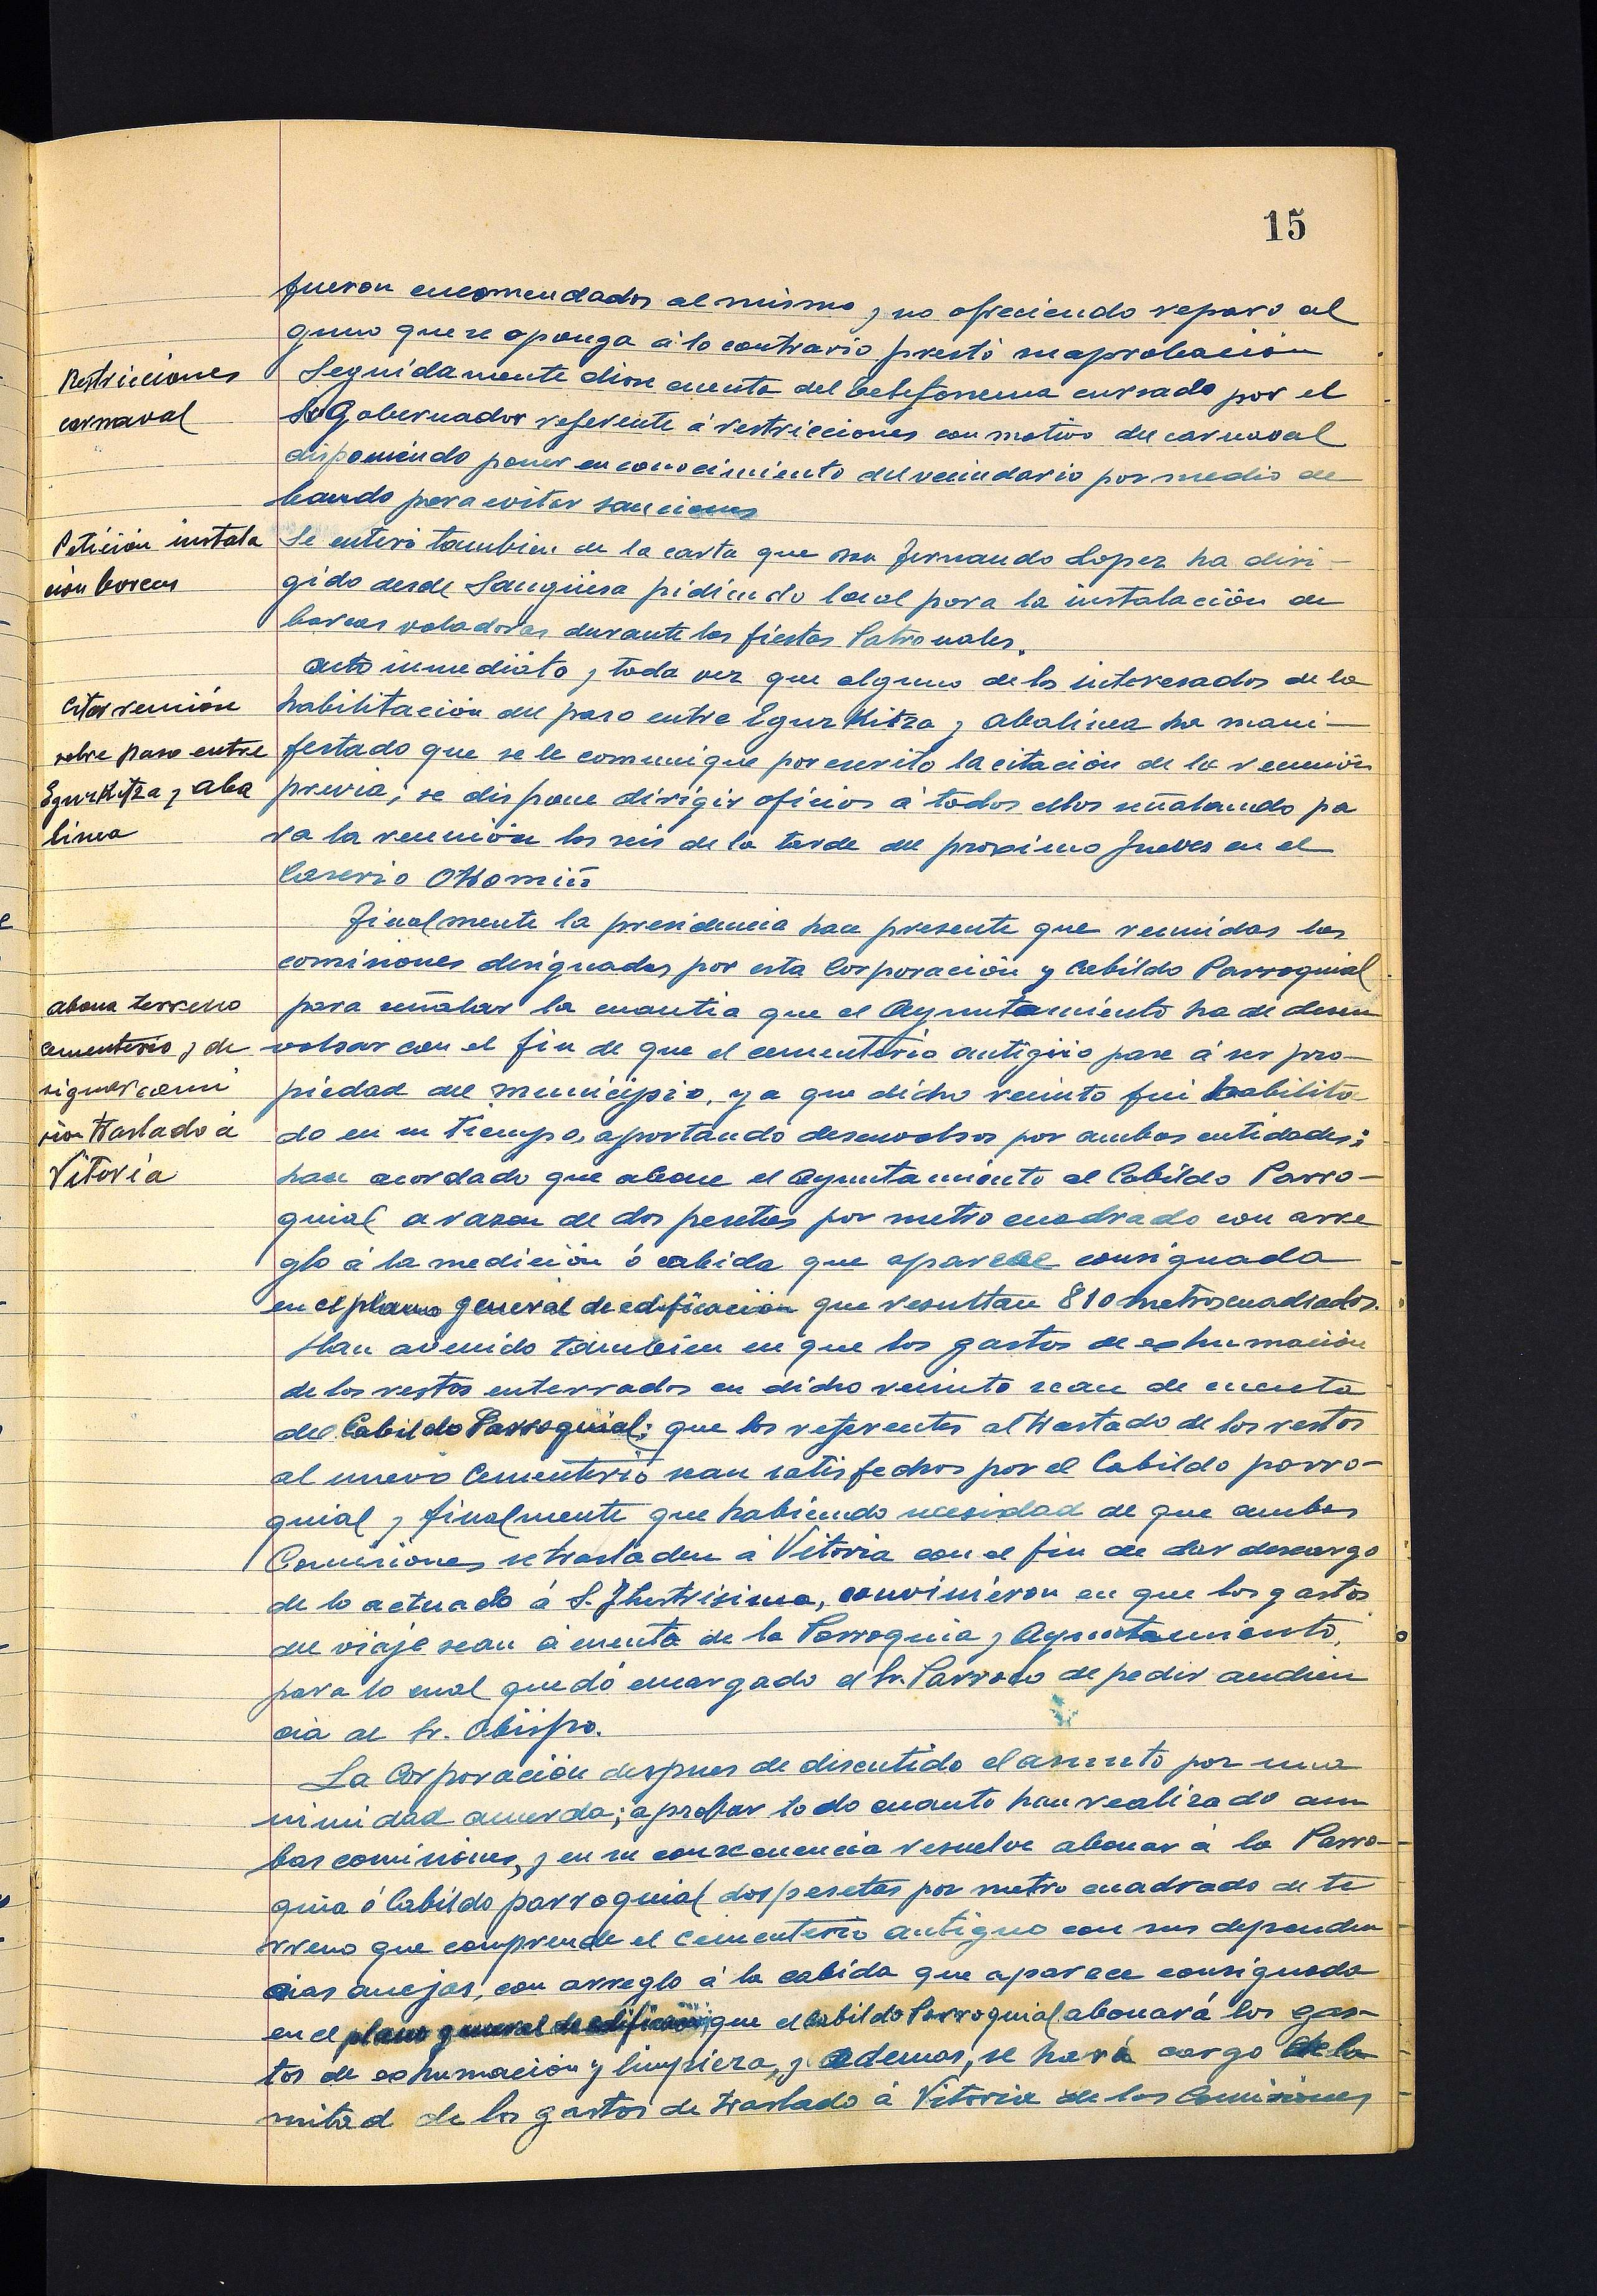 15
fueron encomendados al mismo, y no ofreciendo reparo al
guno que se oponga á lo contrario prestó su aprobación
Restricciones
carnaval
Seguidamente diose cuenta del telefonema cursado por el
Sr Gobernador referente á restricciones con motivo del carnaval
disponiendo poner en conocimiento del vecindario por medio de
bando para evitar sanciones
Petición instala
ción barcas
Se enteró tambien de la carta que Don Fernando Lopez ha diri-
gido desde Sangüesa pidiendo local para la instalación de
barcas voladoras durante las fiestas Patronales.
Citar reunión
sobre paso entre
Egurkitza y Aba
linea
Acto inmediato, y toda vez que alguno de los interesados de la
habilitación del paso entre Egurkitza y Abalinea ha mani-
festado que se le comunique por escrito la citación de la reunión
previa; se dispone dirigir oficios á todos ellos señalando pa
ra la reunión las seis de la tarde del proximo Jueves en el
Caserio Otsomin
Abona terreno
cementerio, y de
signar comi
sion traslado á
Vitoria
Finalmente la presidencia hace presente que reunidas las
comisiones designadas por esta Corporación y Cabildo Parroquial
para señalar la cuantia que el Ayuntamiento ha de desem
volsar con el fin de que el cementerio antiguo pase á ser pro-
piedad del municipio, ya que dicho recinto fué habilita
do en su tiempo, aportando desenvolsos por ambas entidades;
han acordado que abone el Ayuntamiento al Cabildo Parro-
quial a razon de dos pesetas por metro cuadrado con arre
glo á la medición ó cabida que aparece consignada
en el plano general de edificación que resultan 810 metros cuadrados.
Han avenido tambien en que los gastos de exhumación
de los restos enterrados en dicho recinto sean de cuenta
del Cabildo Parroquial; que los referentes al traslado de los restos
al nuevo Cementerio sean satisfechos por el Cabildo parro-
quial y finalmente que habiendo necesidad de que ambas
Comisiones se trasladen á Vitoria con el fin de dar descargo
de lo actuado á S. Ilustrisima, convinieron en que los gastos
del viaje sean á cuenta de la Parroquia y Ayuntamiento,
para lo cual quedó encargado el Sr. Parroco de pedir audien
cia al Sr. Obispo.
La Corporación despues de discutido el asunto por una
nimidad acuerda; aprobar todo cuanto han realizado am
bas comisiones, y en su consecuencia resuelve abonar á la Parro-
quia ó Cabildo parroquial dos pesetas por metro cuadrado de te
rreno que comprende el cementerio antiguo con sus dependen
cias anejas, con arreglo á la cabida que aparece consignada
en el plano general de edificación; que el Cabildo Parroquial abonará los gas-
tos de exhumación y limpieza, y ademas, se hará cargo de la
mitad de los gastos de traslado á Vitoria de las Comisiones